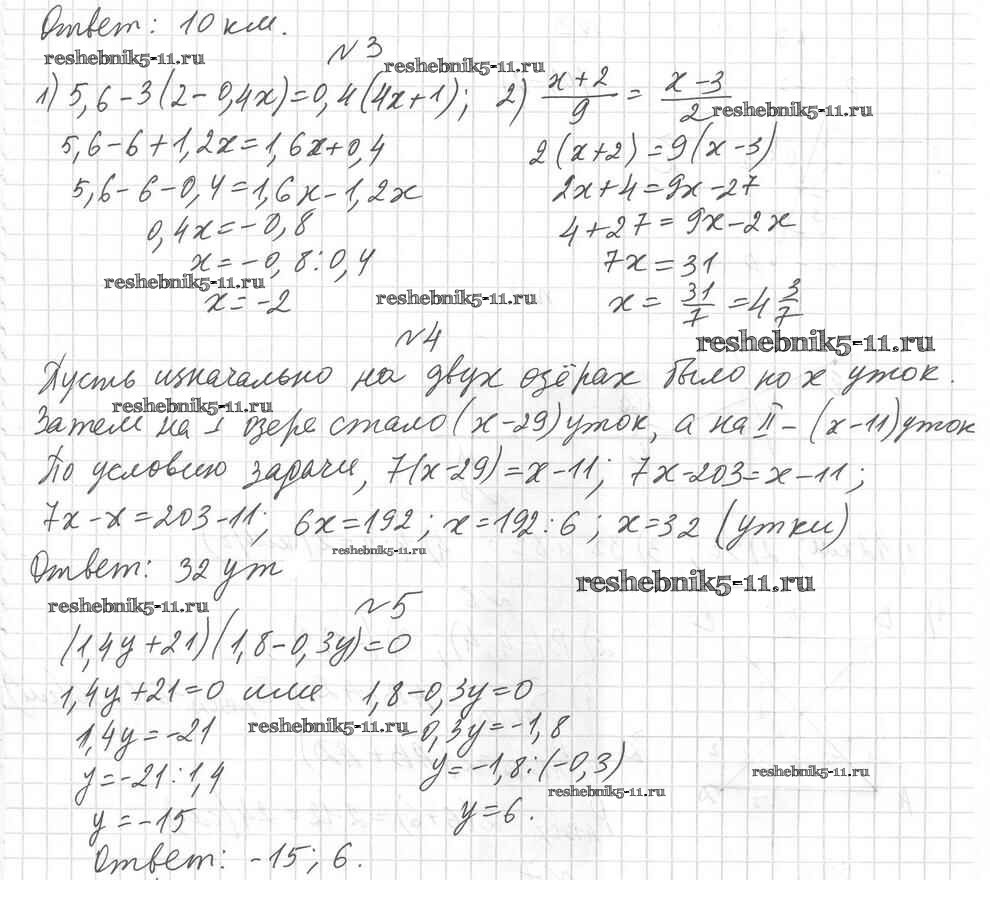 Ответ: 10 км.
reshebnik5-11.ru
№3
reshebnik5-11.ru
1) 5,6-3(2-0,4x)=0,4(4x+1); 2) (x+2)/9 = (x-3)/2
reshebnik5-11.ru
5,6-6+1,2x=1,6x+0,4
2(x+2)=9(x-3)
5,6-6-0,4=1,6x-1,2x
2x+4=9x-27
0,4x=-0,8
4+27=9x-2x
x=-0,8:0,4
7x=31
reshebnik5-11.ru
x=-2
reshebnik5-11.ru
x= 31/7 =4 3/7
№4
reshebnik5-11.ru
Пусть изначально на двух озёрах было по x уток.
reshebnik5-11.ru
Затем на I озере стало (x-29) уток, а на II – (x-11) уток
По условию задачи, 7(x-29)=x-11; 7x-203=x-11;
7x-x=203-11; 6x=192; x=192:6; x=32 (утки)
reshebnik5-11.ru
Ответ: 32 ут
reshebnik5-11.ru
reshebnik5-11.ru
№5
(1,4y+21)(1,8-0,3y)=0
1,4y+21=0 или 1,8-0,3y=0
reshebnik5-11.ru
1,4y=-21
-0,3y=-1,8
y=-21:1,4
y=-1,8:(-0,3)
reshebnik5-11.ru
reshebnik5-11.ru
y=-15
y=6.
Ответ: -15; 6.